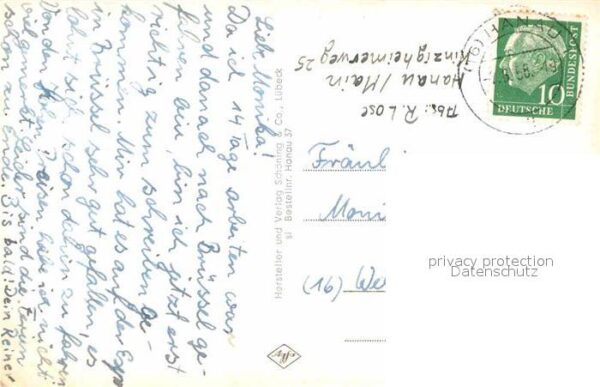 Liebe Monika!
Da ich 14 Tage arbeiten war
und danach nach Brüssel ge-
fahren bin, bin ich jetzt erst
richtig zum schreiben ge-
kommen. Mir hat es auf der Expo
in Brüssel sehr gut gefallen, es
lohnt sich schon dahin zu fahren
Von den Preisen habe ich nichts
viel gemerkt. Leider sind die Ferien
schon zu Ende. Bis bald! Dein Reiner
Hersteller und Verlag Schöning & Co., Lübeck
sl Bestellnr. Hanau 57
Abs: R. Lose
Hanau / Main
Kinzigheimerweg 25
(16) HANAU
10
DEUTSCHE
BUNDESPOST
Fräul
Moni
(16) We
privacy protection
Datenschutz